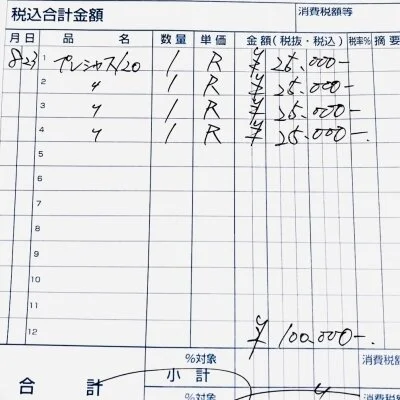 税込合計金額 消費税額等
月 日 品 名 数量 単価 金額(税抜・税込) 税率% 摘要
8 23 1 プレシャス120 1 R ¥25.000-
2 〃 1 R ¥25.000-
3 〃 1 R ¥25.000-
4 〃 1 R ¥25.000-.
4
5
6
7
8
9
10
11
12 ¥100.000-.
%対象 消費税額
合計 小計
%対象 〃 消費税額